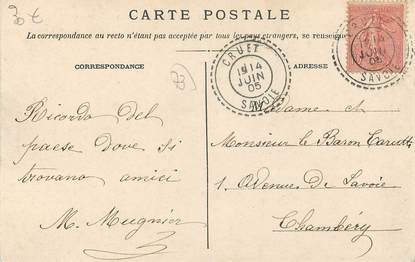 30 €
CARTE POSTALE
La correspondance au recto n'étant pas acceptée par tous les pays étrangers, se renseigner
CORRESPONDANCE
ADRESSE
CRUET
14
JUIN
05
SAVOIE
14
JUIN
05
SAVOIE
73
Ricordo del
paese dove si
trovano amici
M. Mugnier
Madame et
Monsieur le Baron
1. Avenue de Savoie
Chambéry